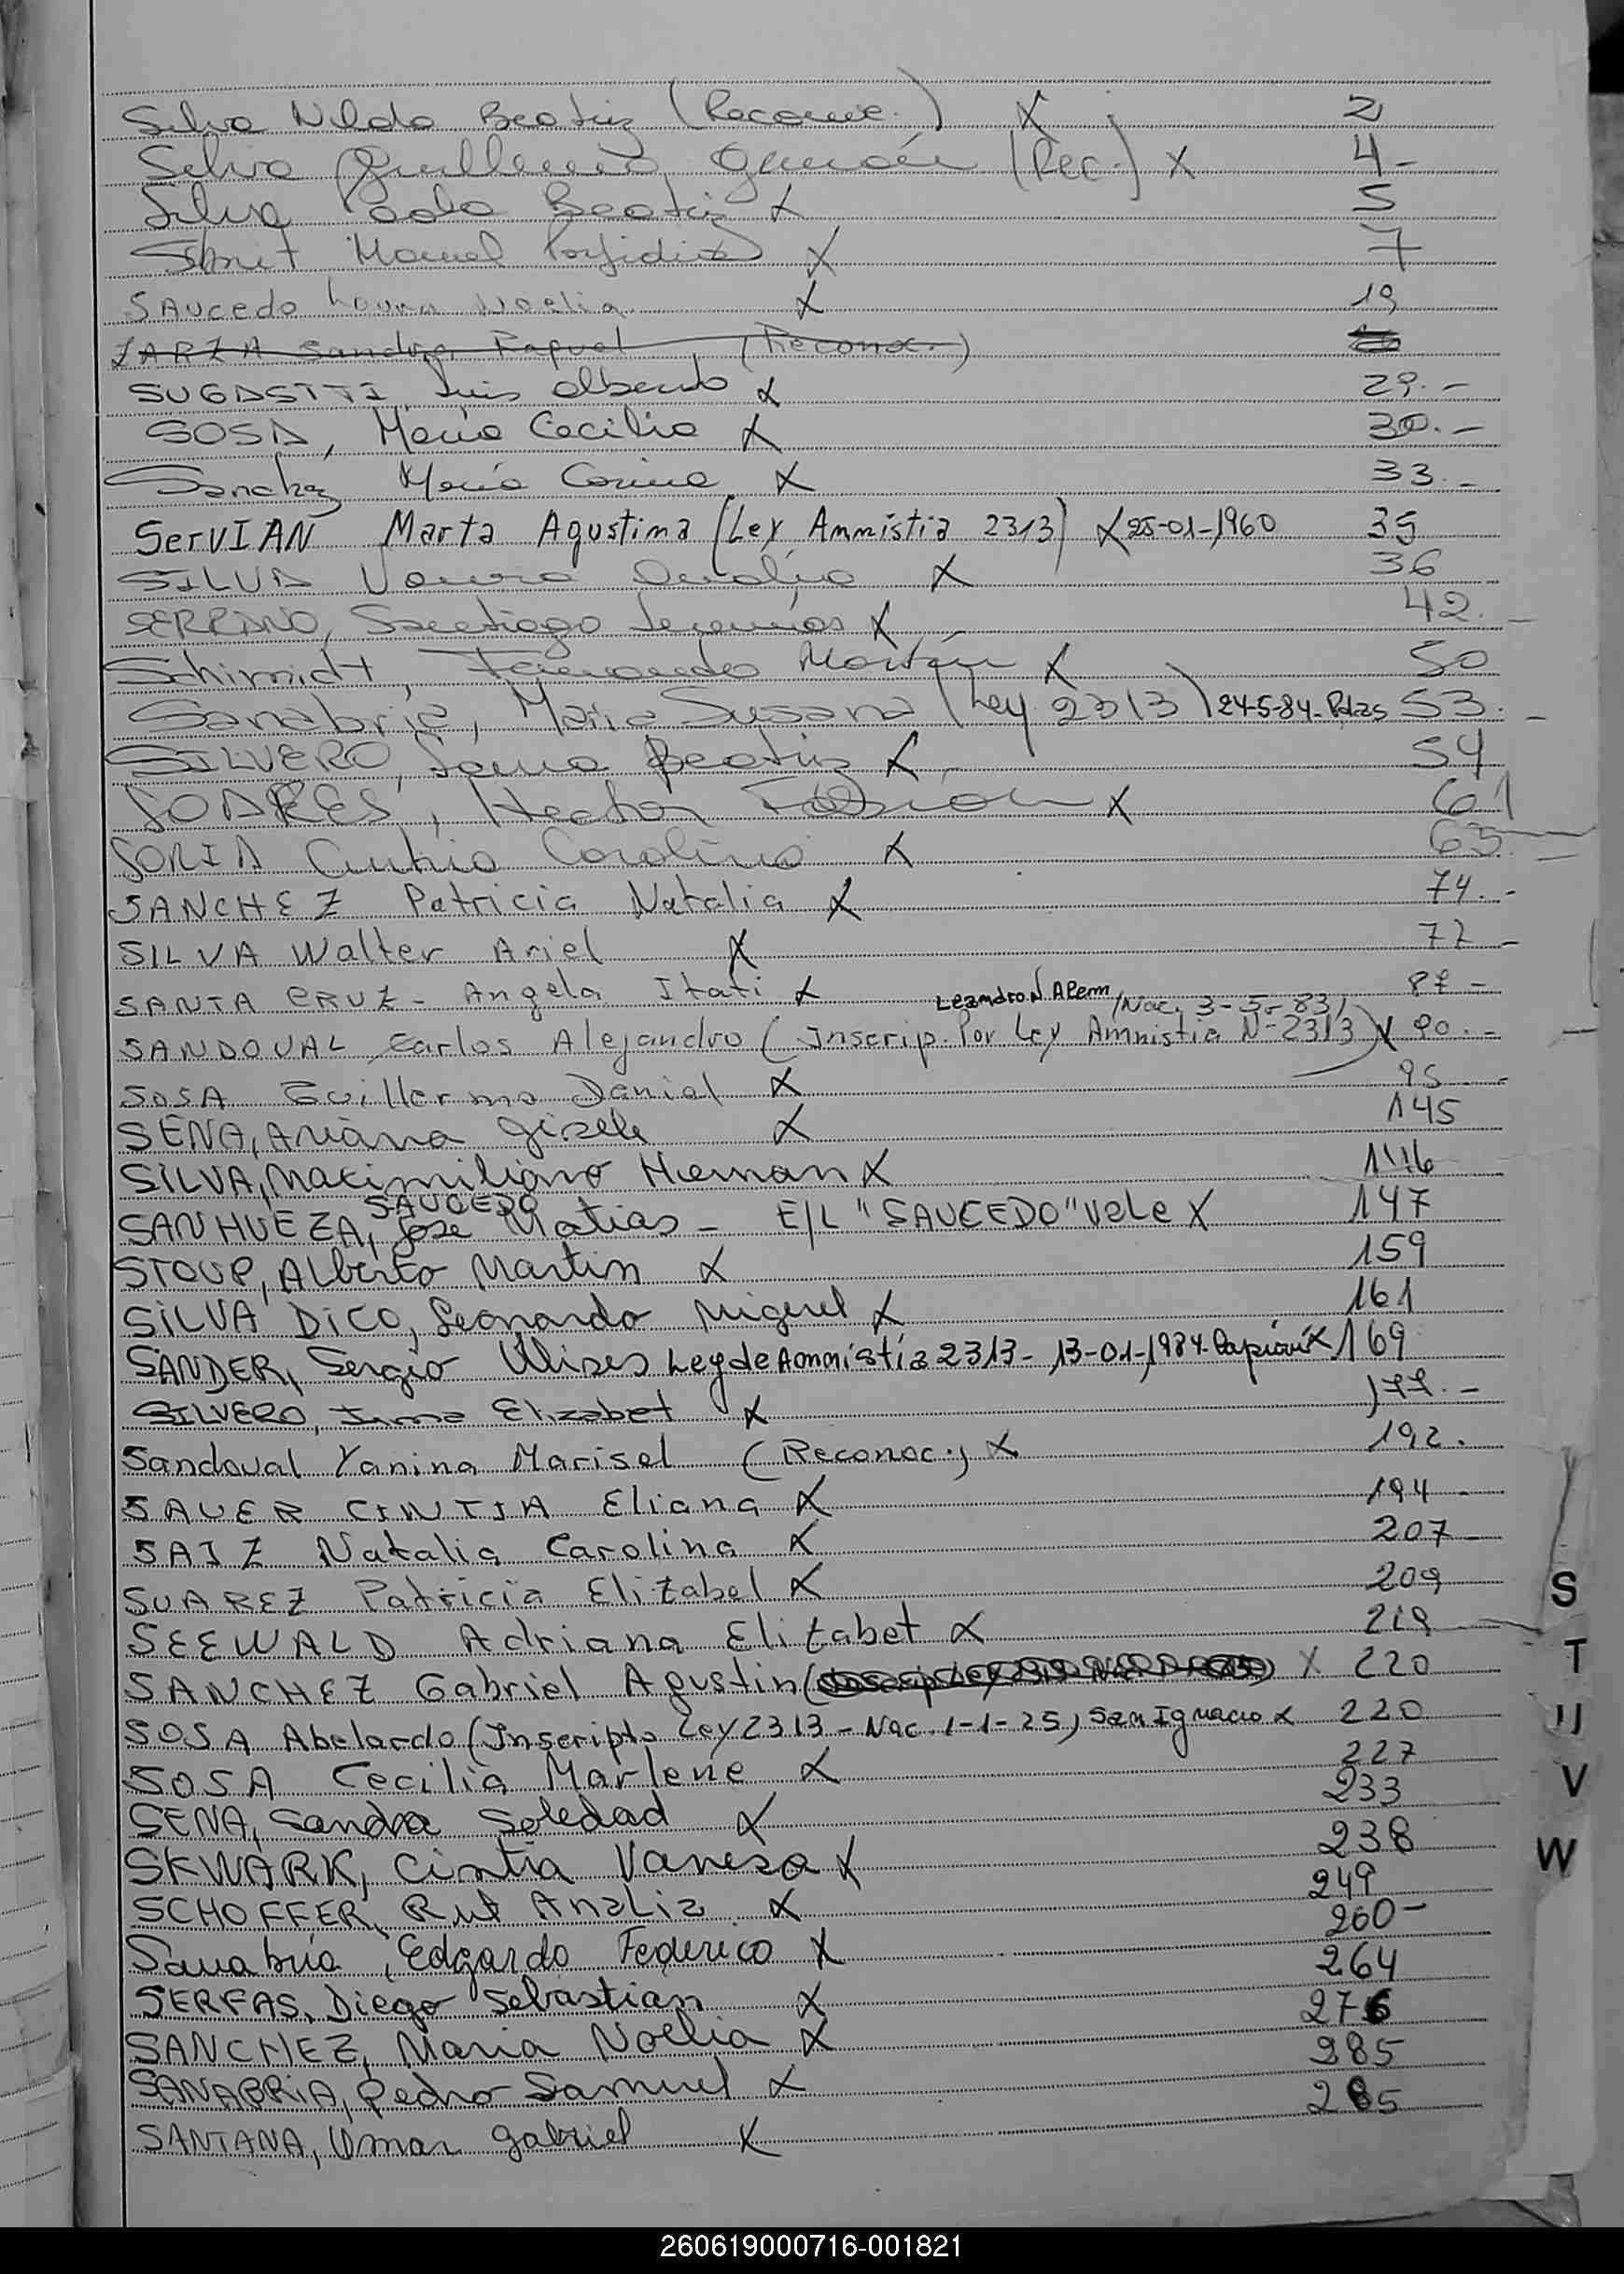 Silva Nilda Beatriz (Reconoc.) X 2
Silva Guillermo Germán (Rec.) X 4-
Silva Paola Beatriz X 5
Manuel Porfidio X 7
SAUCEDO Laura Noelia X 19
ZARZA Sandra Raquel (Reconoc.)
SUGASTTI, Luis Alberto X 29.-
SOSA, María Cecilia X 30.-
Sanchez María Corina X 33.-
SerVIAN Marta Agustina (Ley Amnistia 2313) X 25-01-1960 35
SILVA X 36
SERRANO, Santiago Jeremías X 42.-
Schimidt, Fernando Martín X 50
Sanabria, María Susana (Ley 2313) 24-5-84- Pdas 53.-
SILVERO, Beatriz X 54
SOARES, Hector Fabián X 61
SORIA Cintia Carolina X 63.-
SANCHEZ Patricia Natalia X 74.-
SILVA Walter Ariel X 77-
SANTA CRUZ- Angela Itati X 87-
Leandro N Alem /Nac. 3-5-83)
SANDOVAL Carlos Alejandro (Inscrip. Por Ley Amnistia N-2313) X 90.-
SOSA Guillermo Daniel X 95-
SENA, Ariana Gisele X 145
SILVA, Maximiliano Hernan X 146
SAUCEDO
SANHUEZA, Jose Matias - E/L "SAUCEDO" Vale X 147
STOUP, Alberto Martin X 159
SILVA DICO, Leonardo Miguel X 161
SANDER, Sergio Ulises Ley de Amnistía 2313- 13-01-1984- Capioví X 169
SILVERO, Irma Elizabet X 177.-
Sandoval Yanina Marisel (Reconoc.) X 192.
SAUER CINTIA Eliana X 194-
SAIZ Natalia Carolina X 207-
SUAREZ Patricia Elizabel X 209
SEEWALD Adriana Elizabet X 219
SANCHEZ Gabriel Agustin X 220
SOSA Abelardo (Inscripto Ley 2313 - Nac. 1-1-25) San Ignacio X 220
SOSA Cecilia Marlene X 227
SENA, Sandra Soledad X 233
SKWARK, Cintia Vanesa X 238
SCHOFFER, Rut Analia X 249
Sanabria, Edgardo Federico X 260-
SERFAS, Diego Sebastian X 264
SANCHEZ, Maria Noelia X 276
SANABRIA, Pedro Samuel X 285
SANTANA, Omar Gabriel X 285
S
T
U
V
W
260619000716-001821